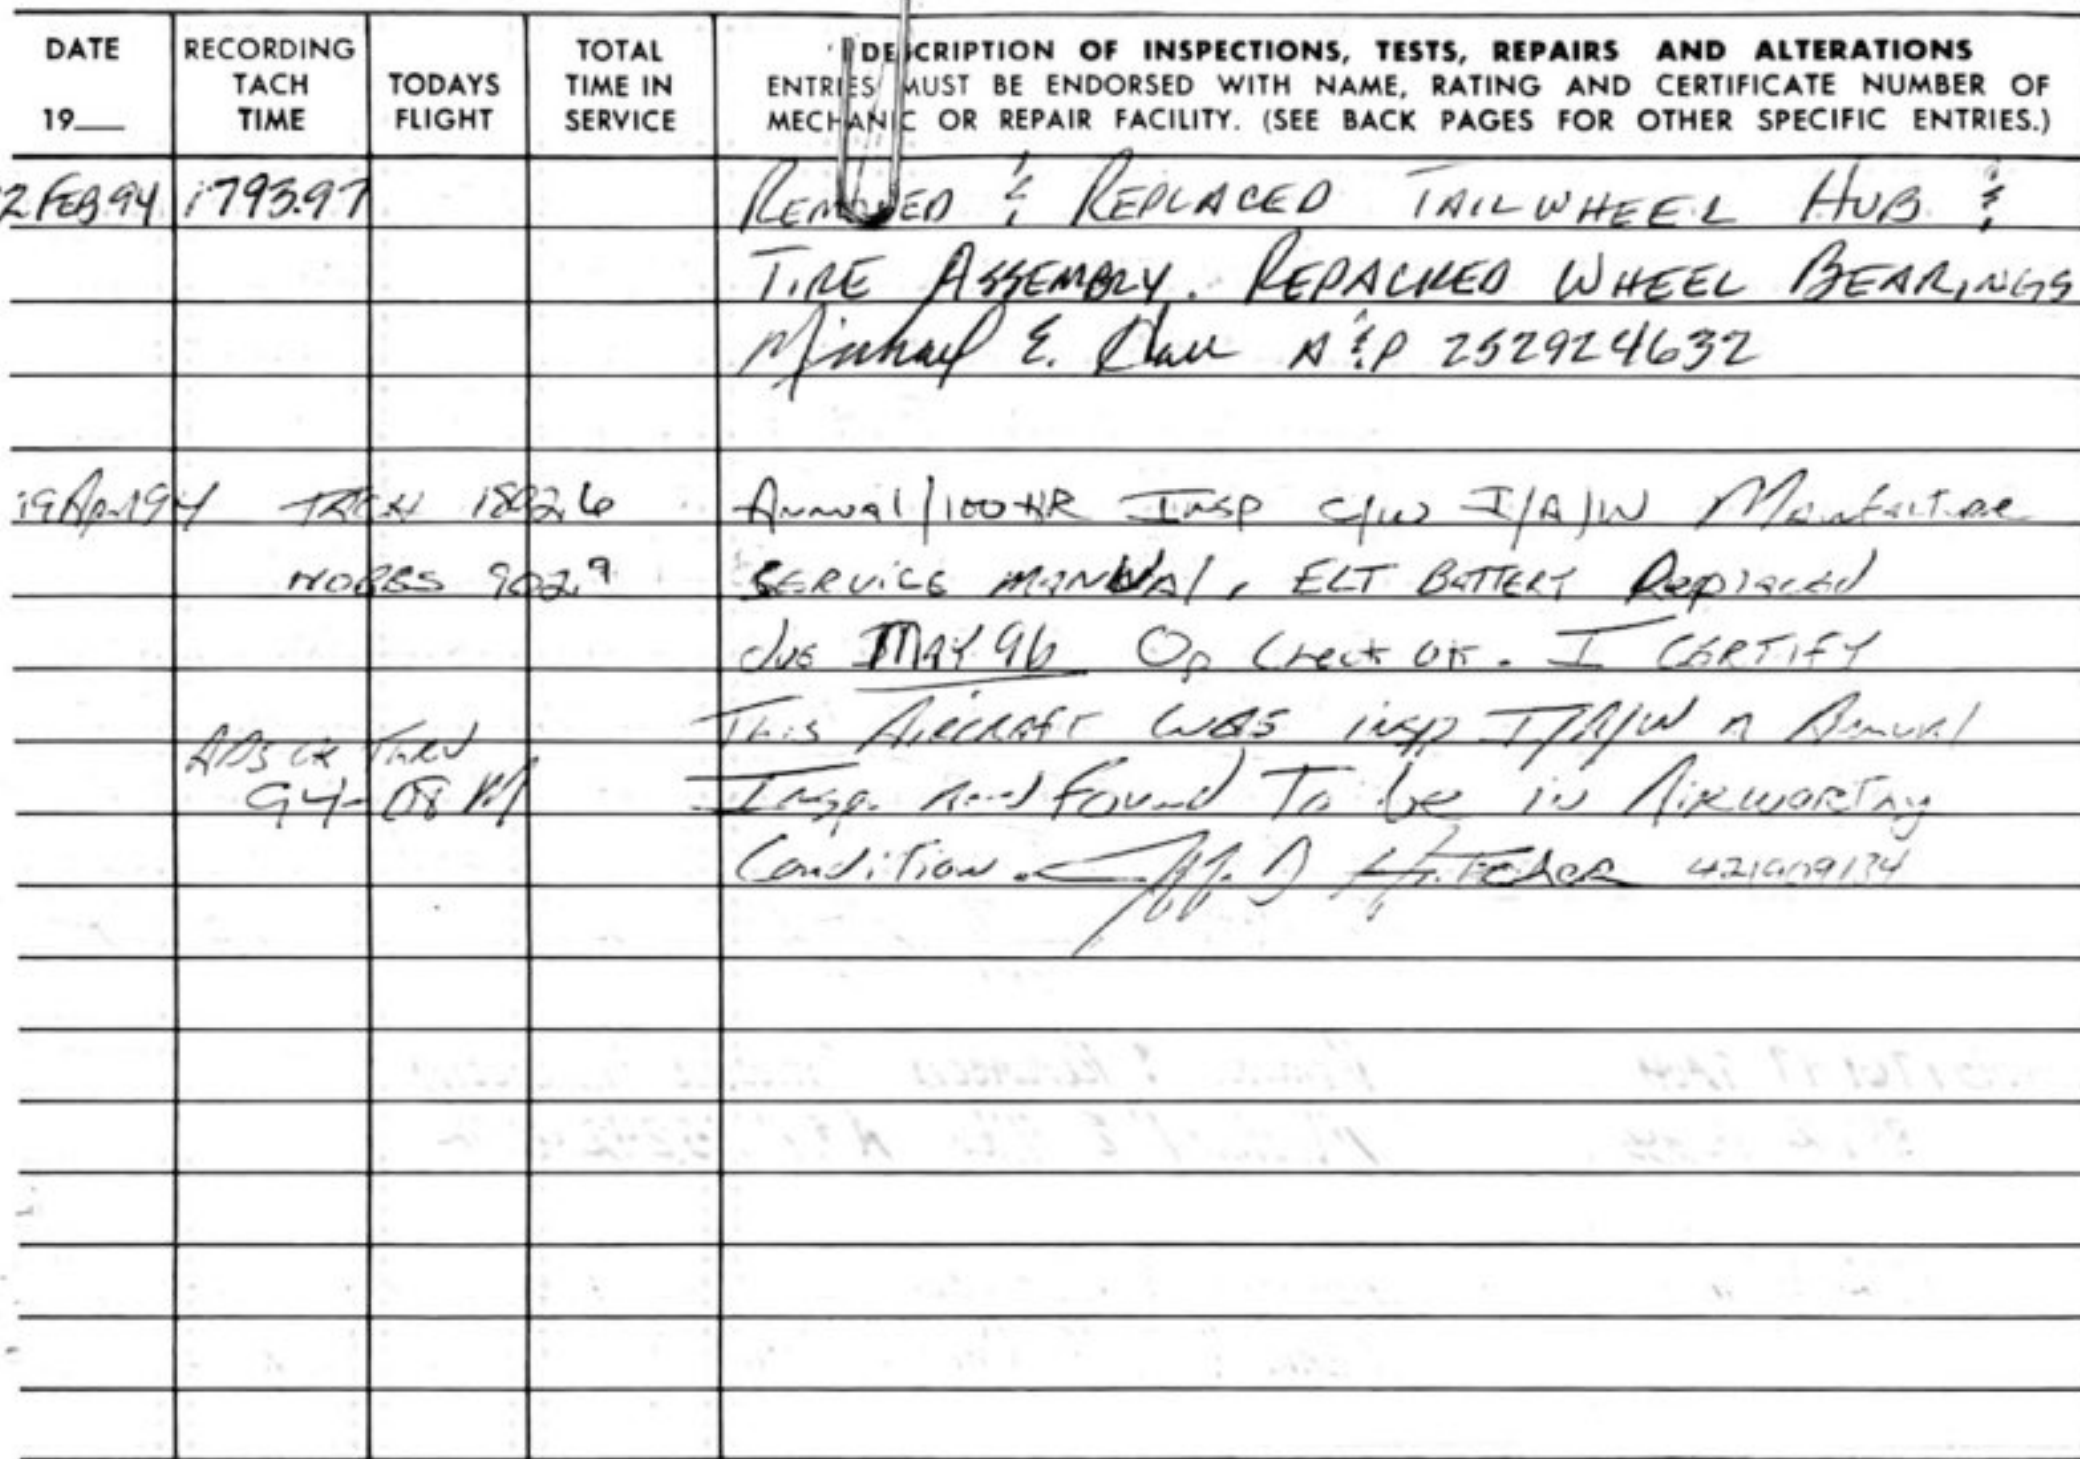 DATE
19__
RECORDING
TACH
TIME
TODAYS
FLIGHT
TOTAL
TIME IN
SERVICE
DESCRIPTION OF INSPECTIONS, TESTS, REPAIRS AND ALTERATIONS
ENTRIES MUST BE ENDORSED WITH NAME, RATING AND CERTIFICATE NUMBER OF
MECHANIC OR REPAIR FACILITY. (SEE BACK PAGES FOR OTHER SPECIFIC ENTRIES.)
2 FEB 94 1793.97 REMOVED & REPLACED TAILWHEEL HUB &
TIRE ASSEMBLY. REPACKED WHEEL BEARINGS
Michael E. A&P 252924632
19 Apr 94 TACH 1802.6 Annual/100 HR INSP C/W I/A/W Manfacture
HOBBS 902.9 SERVICE MANUAL, ELT BATTERY Replaced
due MAY 96 Op Check OK. I CERTIFY
This AIRCRAFT WAS insp I/A/W A Annual
ADS CK THRU
94-08 Insp. And Found To be in AIRWORTHY
Condition. D